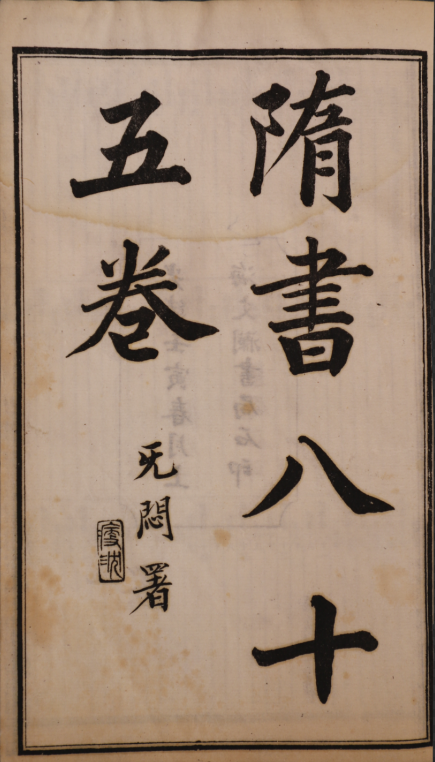 隋書八十
五卷
旡悶署